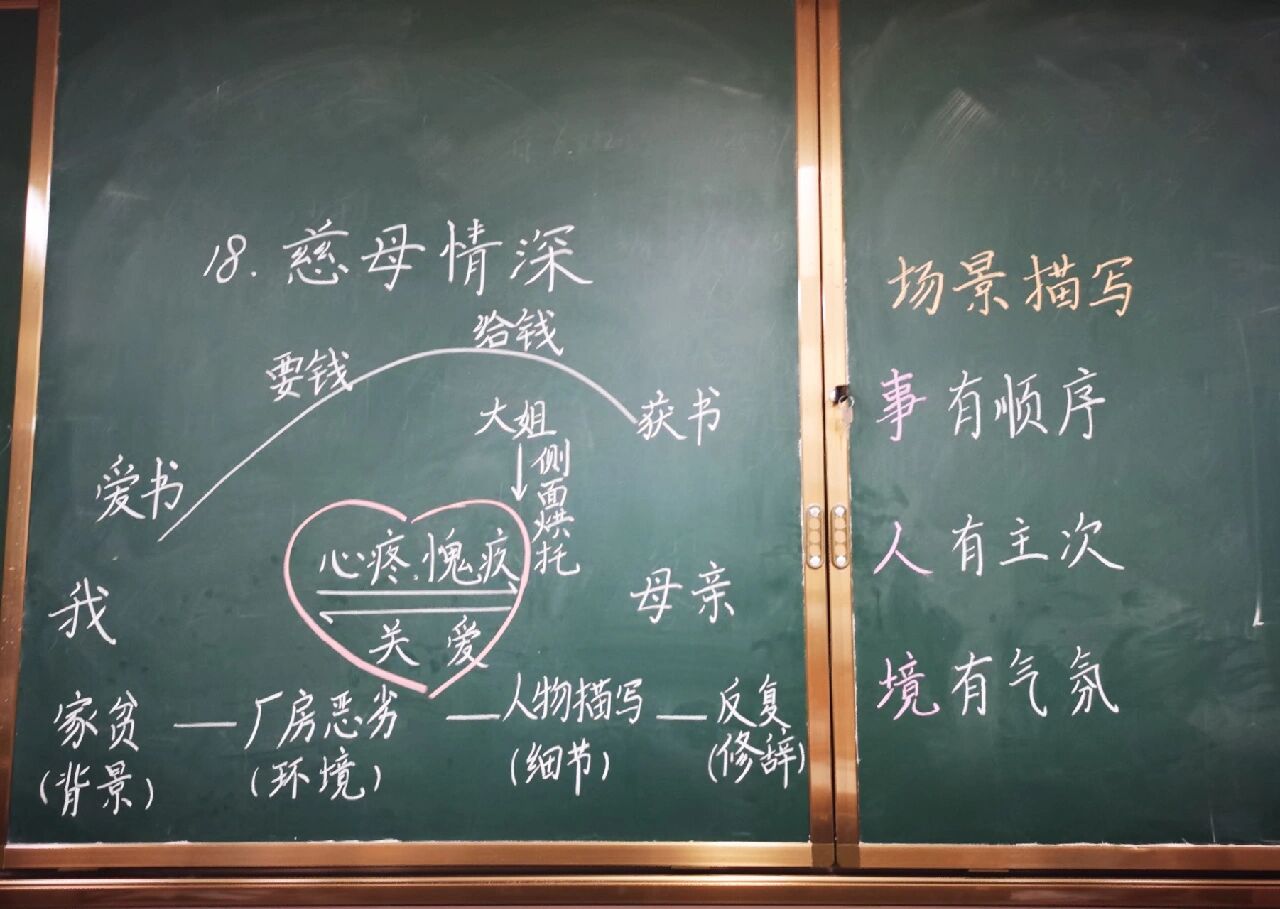 18.慈母情深
给钱
要钱
大姐
获书
爱书
侧面烘托
心疼、愧疚
我
母亲
关爱
家贫—厂房恶劣—人物描写—反复
(背景) (环境) (细节) (修辞)
场景描写
事有顺序
人有主次
境有气氛